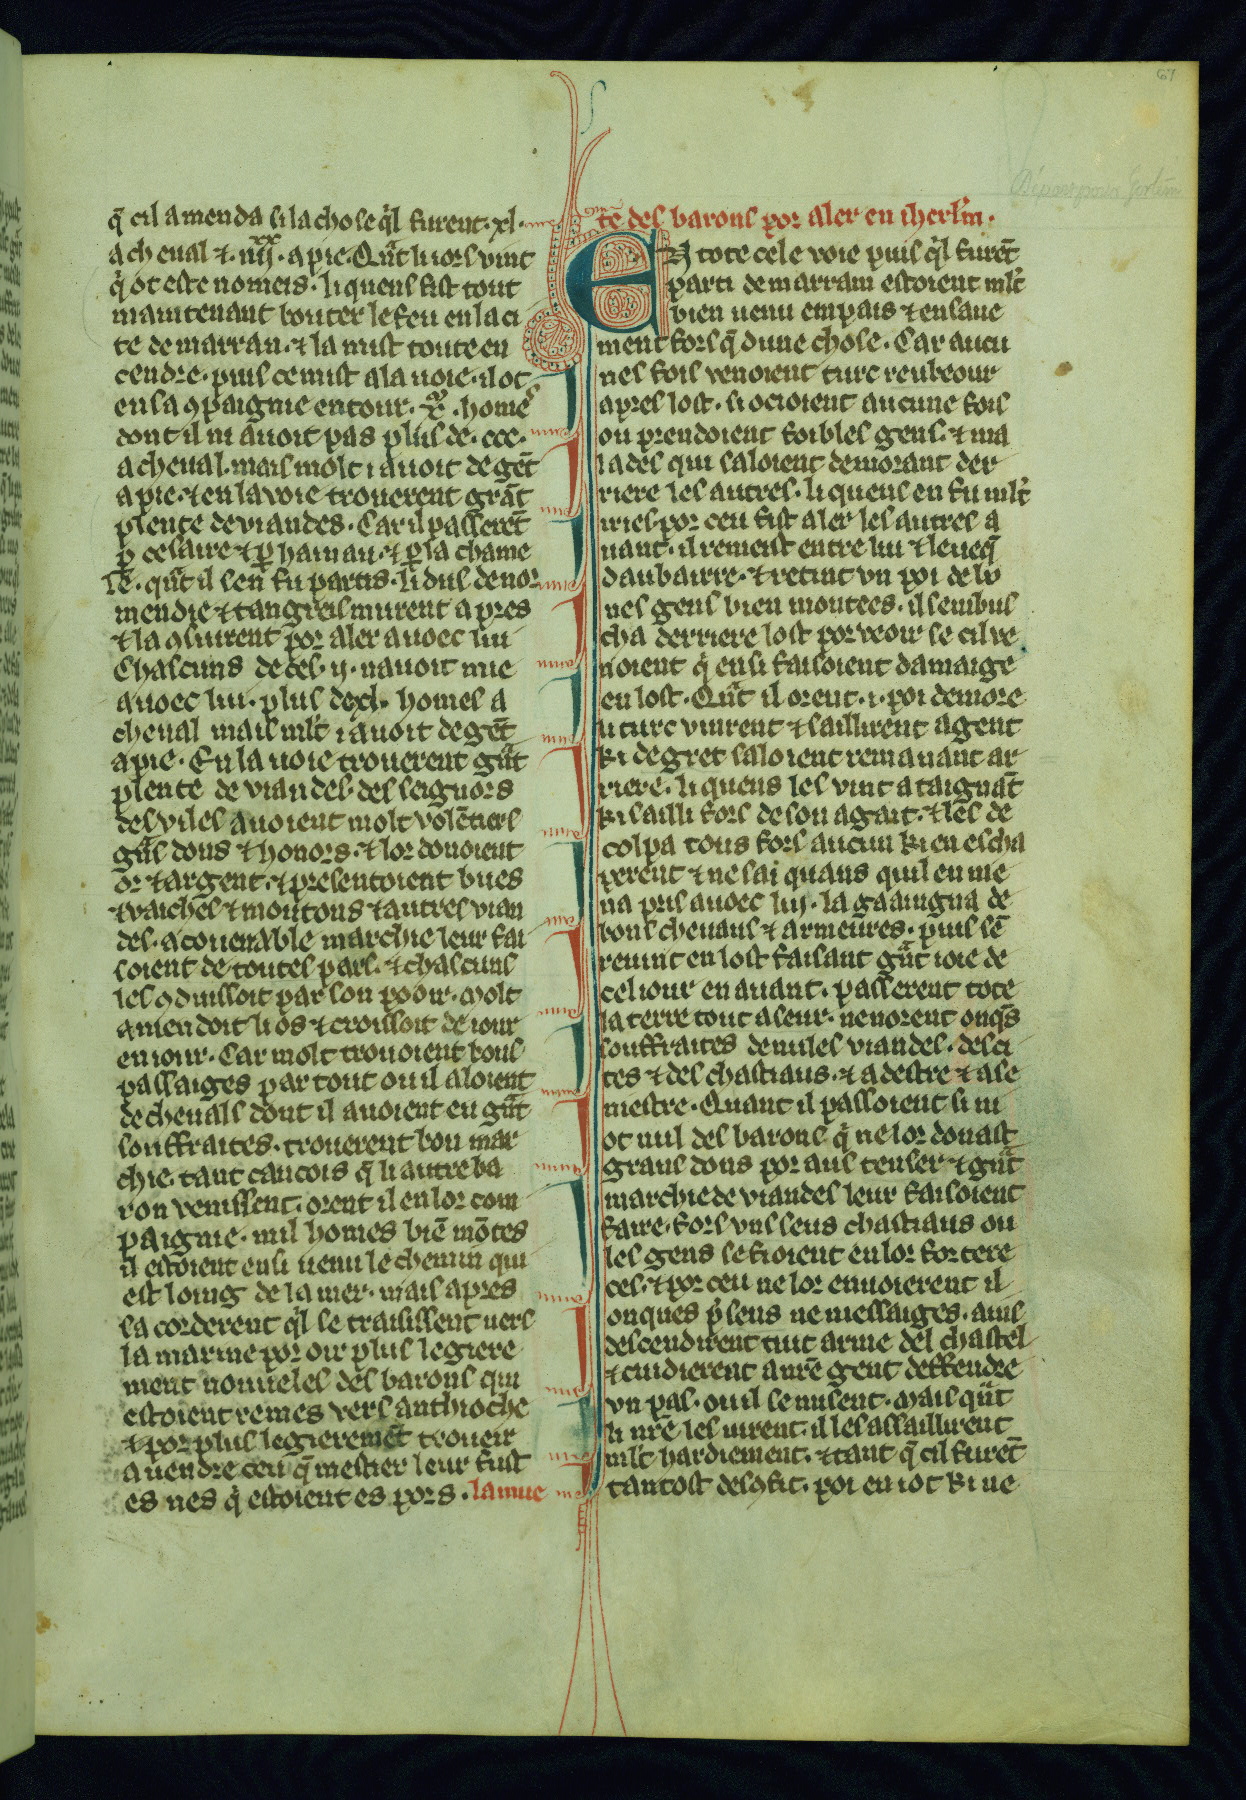 67
q̄ cil amenda si la chose q̇l furent · xl ·
a cheual ⁊ · iiijˣˣ · a pie · Qūt li iors vint
q̇ ot este nomeis · li quens fist tout
maintenant bouter le feu en la ci
te de marran · ⁊ la mist toute en
cendre · puis ce mist a la uoie · il ot
en sa ꝯpaignie entour · xͫ · homes
dont il ni auoit pas plus de · ccc ·
a cheual · mais molt i auoit de gēt
a pie · ⁊ en la voie trouerent grāt
plente de viandes · Car il passerēt
ꝑ cesaire ⁊ ꝑ haman · ⁊ ꝑ la chame
le · qūt il sen fu partis · li dus de nor
mendie ⁊ tangreis murent apres
⁊ la ꝯsiuirent por aler auoec lui
Chascuns de ces · ij · nauoit mie
auoec lui · plus de xl · homes a
cheual mais ml't i auoit de gēt
a pie · En la uoie trouerent gͣnt
plente de viandes · des seignors
des viles auoient molt volētiers
gͣns dons ⁊ honors · ⁊ lor donoient
or ⁊ argent · ⁊ presentoient bues
⁊ vaiches ⁊ moutons ⁊ autres vian
des · a couenable marchie leur fai
soient de toutes pars · ⁊ chascuns
les ꝯduissoit par son pooir · Molt
amendoit li os ⁊ croissoit de iour
en iour · Car molt trouoient bons
passaiges par tout ou il aloient
de cheuals dont il auoient eu gͣnt
souffraites · trouerent bon mar
chie · tant cancois q̄ li autre ba
ron venissent · orent il en lor com
paignie · mil homes biē mōtes
il estoient ensi uenu le chemin qui
est loing de la mer · mais apres
sacorderent q̇l se traisissent uers
la marine por oir plus legiere
ment nouueles des barons qui
estoient remes vers anthioche
⁊ por plus legieremēt troueir
a uendre ceu q̄ mestier leur fust
es nes q̇ estoient es pors · la mue
te des barons por aler en iherl'm ·
EN tote cele voie puis q̇l furēt
parti de marram estoient ml't
bien uenu en pais ⁊ en saue
ment fors q̄ dune chose · Car aucu
nes fois venoient turc reubeour
apres lost · si ocioient aucune fois
ou prendoient foibles gens · ⁊ ma
lades qui saloient demorant der
riere les autres · li quens en fu ml't
iries · por ceu fist aler les autres a
uant · il remest entre lui ⁊ leueq̄
daubairre · ⁊ retint vn poi de lo
nes gens bien montees · il sembus
cha derriere lost por veoir se cil ve
noient q̇ ensi faisoient damaige
en lost · Qūt il orent · i · poi demore
li turc vinrent ⁊ saillirent a gent
ki de gret saloient remanant ar
riere · li quens les vint ataignāt
ki sailli fors de son agait · ⁊ les de
colpa tous fors aucun ki en escha
perent ⁊ ne sai quans quil en me
na pris auoec lui · la gaaingna de
bons cheuaus ⁊ armeures · puis sē
reuint en lost faisant gͣnt ioie de
cel iour en auant · passerent tote
la terre tout aseur · ne norent onq̇s
souffraites de nules viandes · des ci
tes ⁊ des chastiaus · ⁊ a destre ⁊ a se
nestre · Quant il passoient si ni
ot nul des barons q̇ ne lor donast
grans dons por aus tenser ⁊ gͣnt
marchie de viandes leur faisoient
faire · fors uns seus chastiaus ou
les gens se fioient en lor fortere
ces · ⁊ por ceu ne lor enuoierent il
onques ṗsens ne messaiges · ains
descendirent tuit arme del chastel
⁊ cuidierent a nr̄e gent deffendre
vn pas · ou il se misent · Mais qūt
li nr̄e les uirent · il les assaillirent
ml't hardiement · ⁊ tant q̄ cil furēt
tantost desꝯfit · poi en i ot ki ne